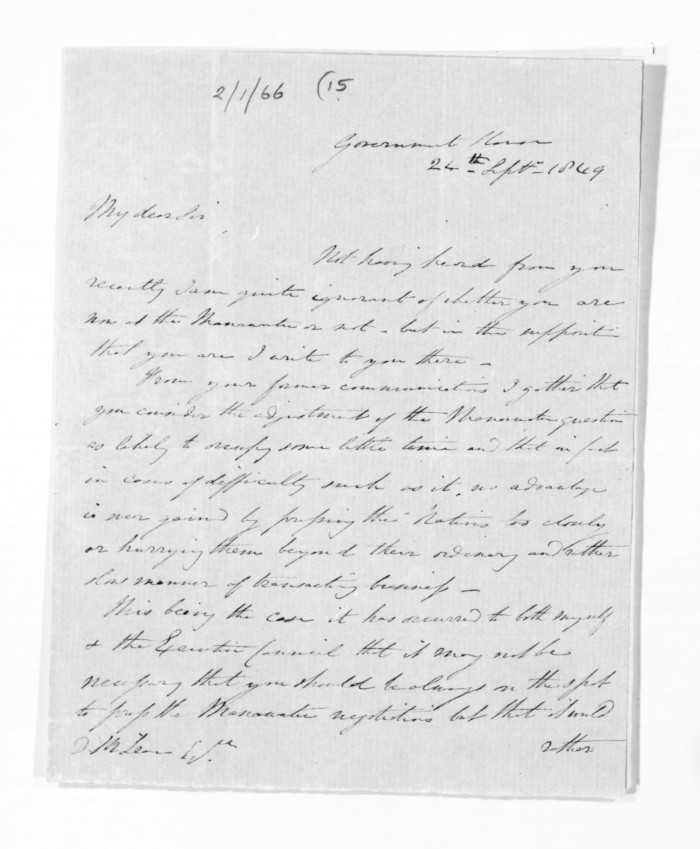 2/1/66 (15
Government House
24th Septr 1849
My dear Sir,
Not having heard from you
recently I am quite ignorant of whether you are
now at the Manawatu or not - but in the supposition
that you are I write to you there -
From your former communications I gather that
you consider the adjustment of the Manawatu question
as likely to occupy some little time and that in fact
in cases of difficulty such as it, no advantage
is ever gained by pressing the Natives too closely
or hurrying them beyond their ordinary and rather
slow manner of transacting business -
This being the case it has occurred to both myself
& the Executive Council that it may not be
necessary that you should be always on the spot
to press the Manawatu negotiations but that it would
D. McLean Esqre rather